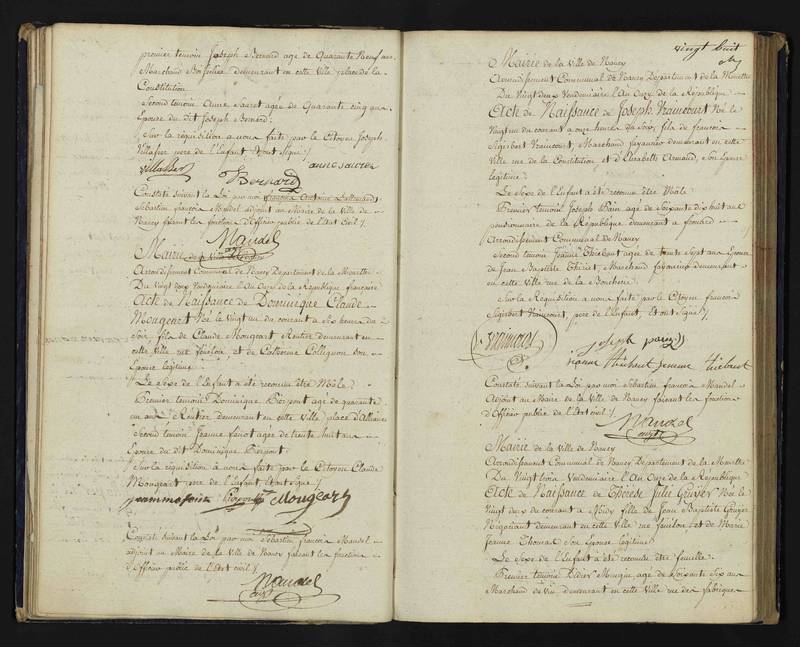 premier temoin Joseph Bernard agé de Quarante Neuf ans
Marchand demeurant en cette Ville place de la
Constitution
Second temoin Anne Sauret agée de Quarante cinq ans
Epouse du dit Joseph Bernard;
Sur la réquisition a nous faite par le Citoyen Joseph
Villasser pere de l'Enfant Et ont Signé /
Villasser
Bernard
anne sauret
Constaté suivant la Loi par moi
Sebastien françois Mandel adjoint au Maire de la Ville de
Nancy faisant les fonctions d'Officier public de l'Etat civil /
Mandel
adjt
Mairie de la Ville de Nancy
Arrondissement Communal de Nancy Département de la Meurthe
Du Vingt deux Vendemiaire l'An Onze de la République française
Acte de Naissance de Dominique Claude
Mougeart Né le Vingt un du courant a Six heures du
Soir, fils de Claude Mougeart Rentier demeurant en
cette Ville rue fénélon, et de Catherine Collignon son
Epouse légitime
Le Sexe de l'Enfant a été reconnu être Mâle
Premier temoin Dominique Pierpont agé de quarante
un ans Rentier demeurant en cette Ville place d'Alliance
Second temoin Jeanne fanot agée de trente huit ans
Epouse du dit Dominique Pierpont
Sur la réquisition à nous faite par le Citoyen Claude
Mougeart pere de l'Enfant, Et ont Signé /
Mougeart
Constaté suivant la Loi par moi Sebastien françois Mandel
adjoint au Maire de la Ville de Nancy faisant les fonctions
d'Officier public de l'Etat civil /
Mandel
adjt
vingt huit
Mairie de la Ville de Nancy
Arrondissement Communal de Nancy Département de la Meurthe
Du Vingt deux Vendemiaire l'An Onze de la République
Acte de Naissance de Joseph Vraincourt Né le
Vingt un du courant a onze heures du Soir, fils de françois
Sigisbert Vraincourt, Marchand fayancier demeurant en cette
Ville rue de la Constitution, et d'Elisabeth Arnaud, Son Epouse
légitime
Le Sexe de l'Enfant a été reconnu être Mâle
Premier temoin Joseph Pain agé de Soixante dix huit ans
pensionnaire de la République demeurant a frouard
Arrondissement Communal de Nancy
Second temoin Jeanne Thiebaut agée de trente Sept ans Epouse
de Jean Baptiste Thiriet Marchand fayancier demeurant
en cette Ville rue de la Boucherie
Sur la Réquisition a nous faite par le Citoyen francois
Sigisbert Vraincourt, pere de l'Enfant, Et ont Signé /
joseph pain
jeanne thiebaut femme thiebaut
Constaté suivant la Loi, par moi Sébastien françois Mandel
Adjoint au Maire de la Ville de Nancy faisant les fonctions
d'Officier public de l'Etat civil /
Mandel
adjt
Mairie de la Ville de Nancy
Arrondissement Communal de Nancy Département de la Meurthe
Du Vingt trois Vendemiaire l'An Onze de la République
Acte de Naissance de Thérèse Julie Gruyer Née le
Vingt deux du courant a Midy fille de Jean Baptiste Gruyer
Négociant demeurant en cette Ville rue fénélon, et de Marie
Jeanne Thomas Son Epouse légitime
Le Sexe de l'Enfant a été reconnu être femelle
Premier temoin Didier Mougin agé de Soixante Six ans
Marchand de Vin demeurant en cette Ville rue des fabriques